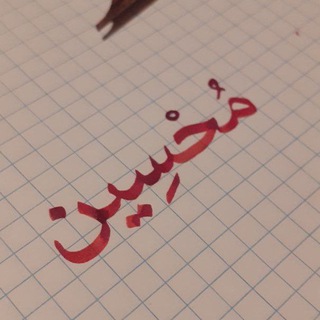 مُحْسِين